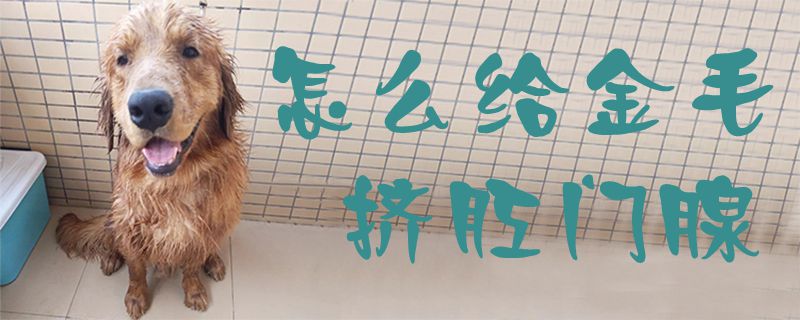 怎么给金毛
挤肛门腺